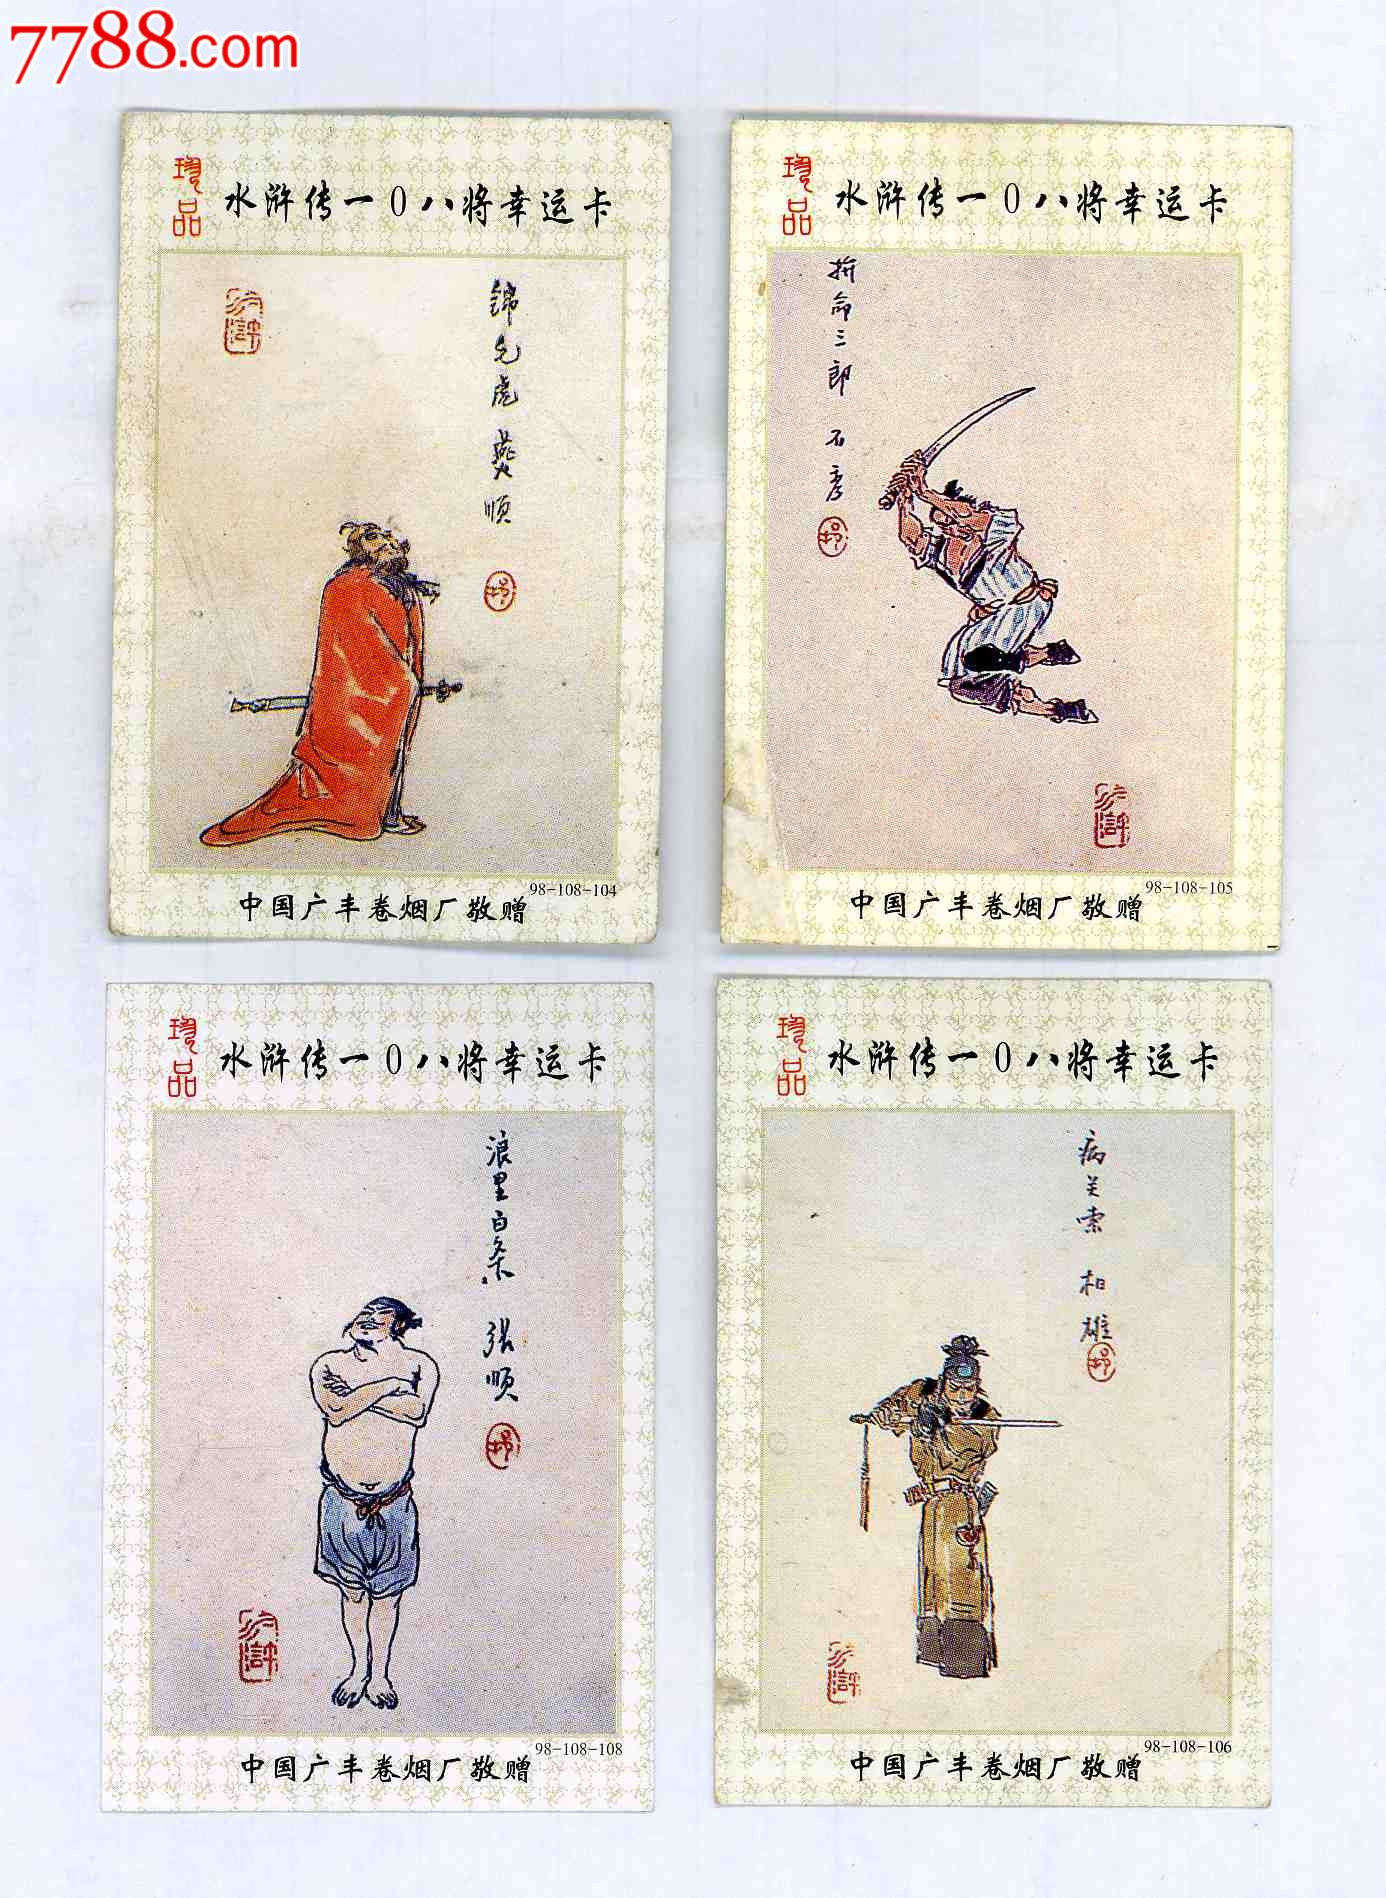 7788.com
珍品
水浒传一0八将幸运卡
水浒
锦毛虎 燕顺
98-108-104
中国广丰卷烟厂敬赠
珍品
水浒传一0八将幸运卡
拚命三郎 石秀
水浒
98-108-105
中国广丰卷烟厂敬赠
珍品
水浒传一0八将幸运卡
浪里白条 张顺
水浒
98-108-108
中国广丰卷烟厂敬赠
珍品
水浒传一0八将幸运卡
病关索 杨雄
水浒
98-108-106
中国广丰卷烟厂敬赠